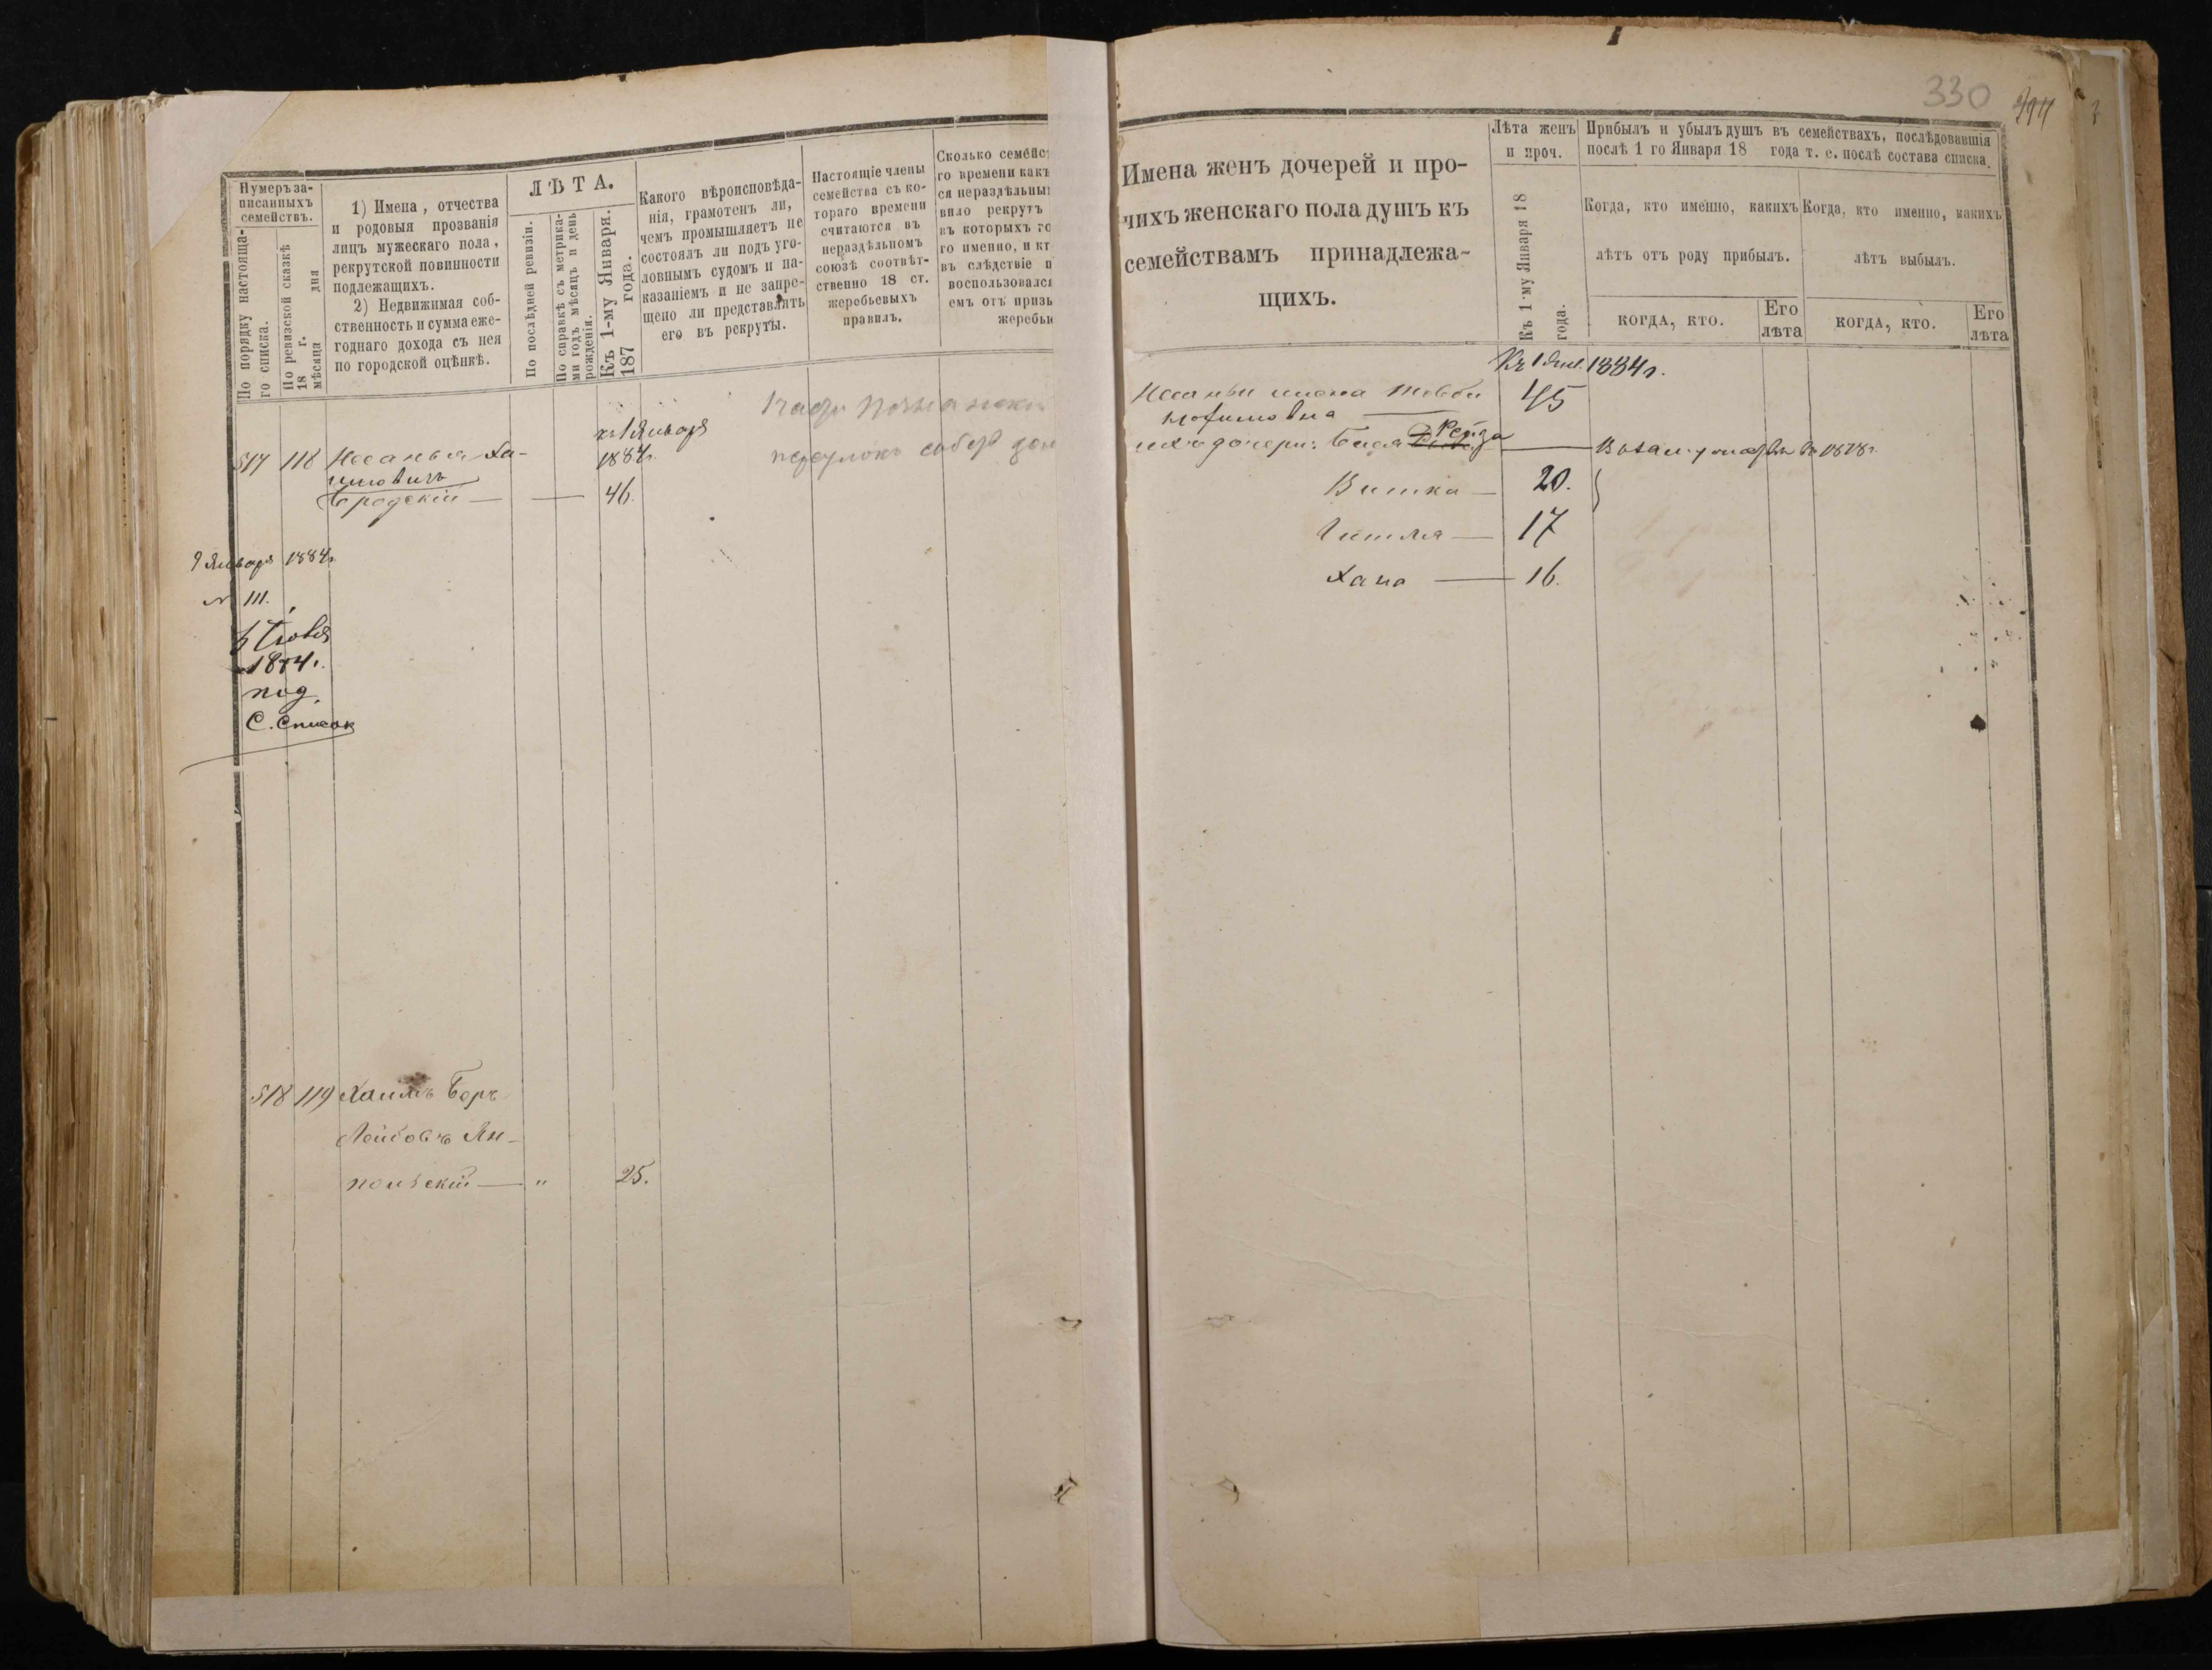 330
Нумеръ за-
писанныхъ
семействъ.
По порядку настояща-
го списка.
По ревизской сказкѣ
18 г.
мѣсяца дня
1) Имена, отчества
и родовыя прозванія
лицъ мужескаго пола,
рекрутской повинности
подлежащихъ.
2) Недвижимая соб-
ственность и сумма еже-
годнаго дохода съ нея
по городской оцѣнкѣ.
ЛѢТА.
По послѣдней ревизіи.
По справкѣ съ метрика-
ми годъ мѣсяцъ и день
рожденія.
Къ 1-му Января.
187 года.
Какого вѣроисповѣда-
нія, грамотенъ ли,
чемъ промышляетъ не
состоялъ ли подъ уго-
ловнымъ судомъ и на-
казаніемъ и не запре-
щено ли представлять
его въ рекруты.
Настоящіе члены
семейства съ ко-
тораго времени
считаются въ
нераздѣльномъ
союзѣ соотвѣт-
ственно 18 ст.
жеребьевыхъ
правилъ.
Сколько семейс
го времени какъ
ся нераздѣльны
вило рекрутъ
въ которыхъ го
го именно, и кт
въ слѣдствіе п
воспользовалс
емъ отъ призы
жеребью
къ 1 Января
1884г.
517 118 Несанель Ха-
имовичъ
Бродскій — — 46.
9 Января 1884г.
№ 111.
1874г.
под.
С. Список
518 119 Хаимъ Беръ
Лейбовъ Ян-
польскій — " 25.
Имена женъ дочерей и про-
чихъ женскаго пола душъ къ
семействамъ принадлежа-
щихъ.
Лѣта женъ
и проч.
Къ 1-му Января 18
года.
Прибылъ и убылъ душъ въ семействахъ, послѣдовавшія
послѣ 1 го Января 18 года т. е. послѣ состава списка.
Когда, кто именно, какихъ
лѣтъ отъ роду прибылъ.
КОГДА, КТО.
Его
лѣта
Когда, кто именно, какихъ
лѣтъ выбылъ.
КОГДА, КТО.
Его
лѣта
Къ 1 Янв. 1884г.
жена 45
ихъ дочери: Бася Рейза —
20.
Гитля — 17
Хана — 16.